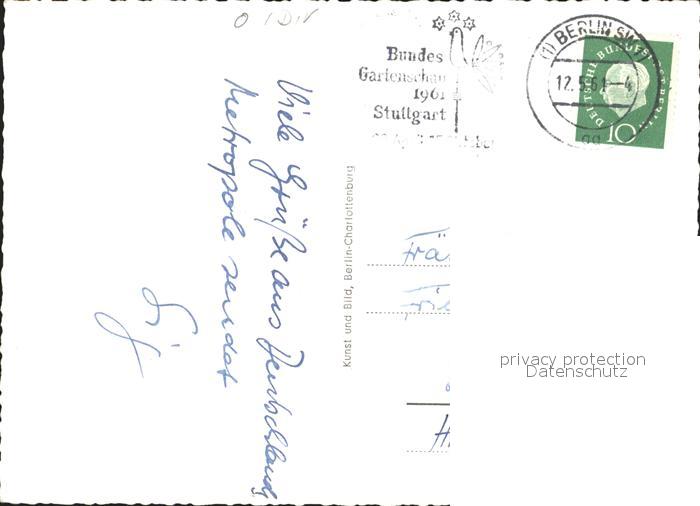 Bundes
Gartenschau
1961
Stuttgart
(1) BERLIN SW
12.5.61 -4
DEUTSCHE BUNDESPOST BERLIN
10
Viele Grüße aus Deutschlands
Metropole sendet
Kunst und Bild, Berlin-Charlottenburg
Frä
privacy protection
Datenschutz
H